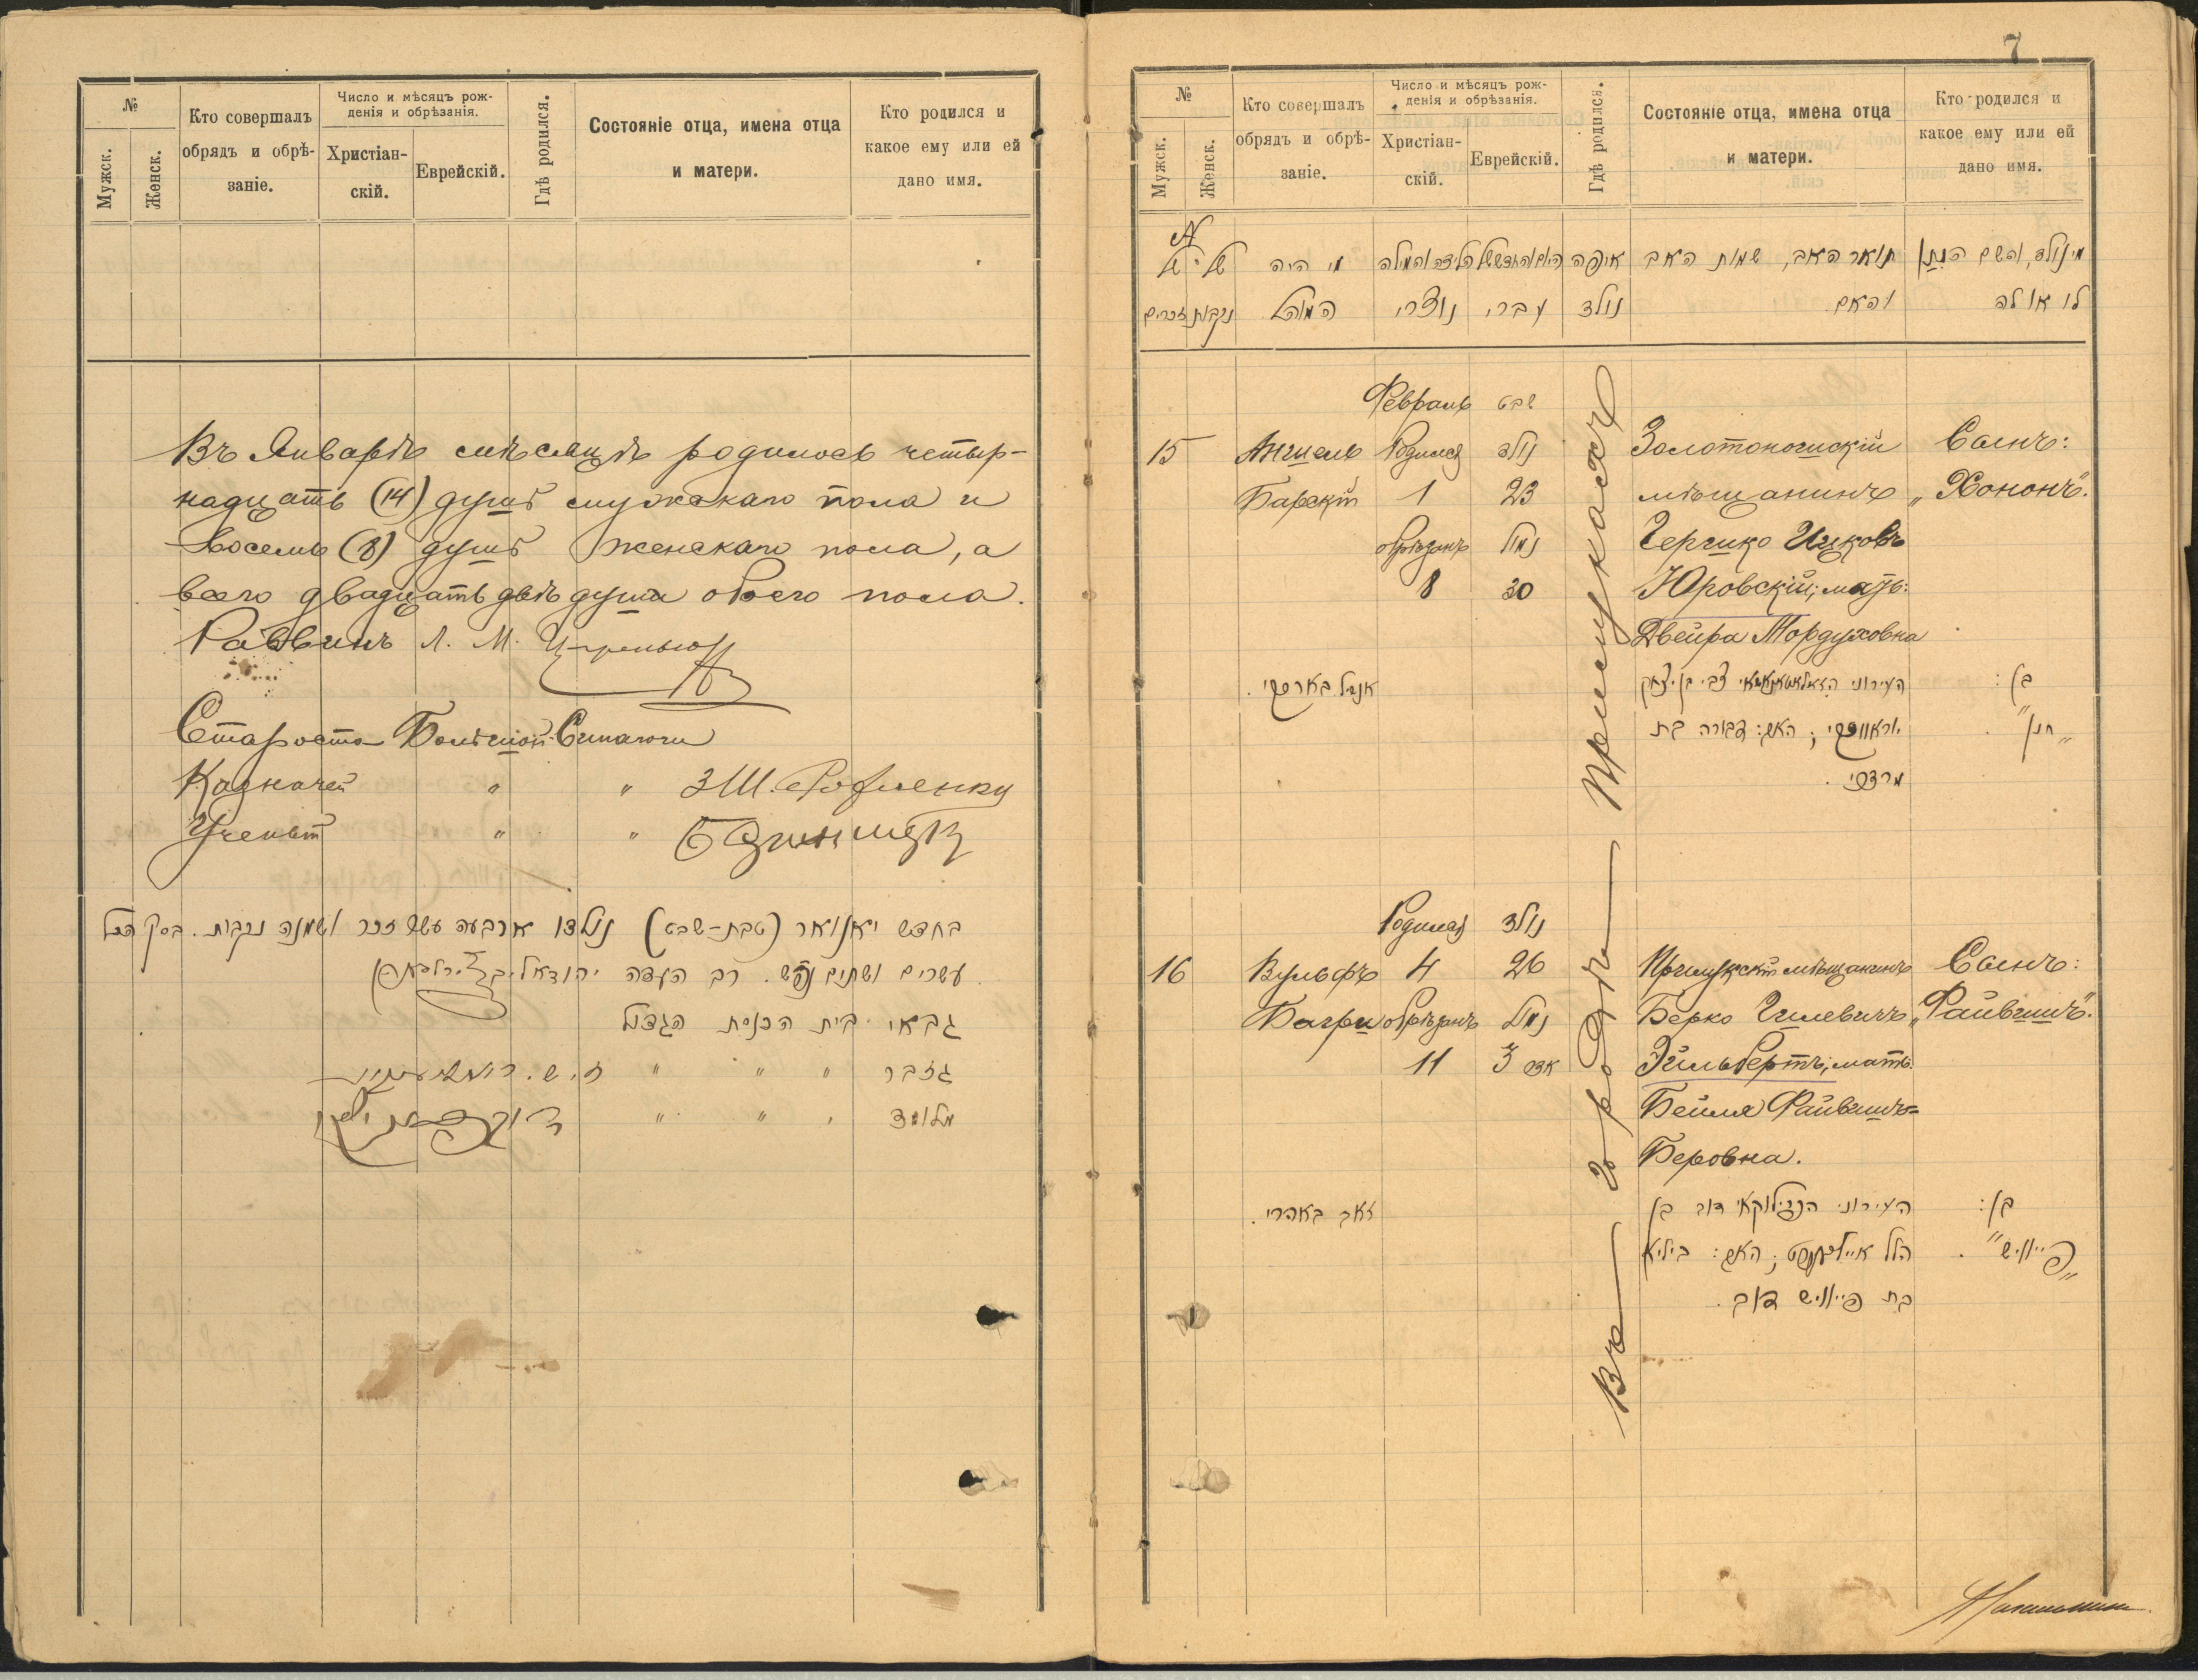 №
Мужск.
Женск.
Кто совершалъ
обрядъ и обрѣ-
заніе.
Число и мѣсяцъ рож-
денія и обрѣзанія.
Христіан-
скій.
Еврейскій.
Гдѣ родился.
Состояніе отца, имена отца
и матери.
Кто родился и
какое ему или ей
дано имя.
Въ Январѣ мѣсяцѣ родилось четыр-
надцать (14) душъ мужскаго пола и
восемь (8) душъ женскаго пола, а
всего двадцать двѣ души обоего пола.
Раввинъ Л. М.
Староста Большой Синагоги
Казначей " "
Ученый " "
בחדש יאנואר (טבת-שבט) נולדו ארבעה עשר זכר ושמנה נקבות. בסך הכל
עשרים ושתים נפש. רב העדה
גבאי בית הכנסת הגדול
גזבר " " "
מלומד " " "
7
№
Мужск.
Женск.
Кто совершалъ
обрядъ и обрѣ-
заніе.
Число и мѣсяцъ рож-
денія и обрѣзанія.
Христіан-
скій.
Еврейскій.
Гдѣ родился.
Состояніе отца, имена отца
и матери.
Кто родился и
какое ему или ей
дано имя.
מי נולד, והשם הנתן
תואר האב, שמות האב
איפה
הלידה והמילה
מי היה
של
של
לו או לה
והאם.
נולד
עברי
נוצרי
המוהל
נקבות
זכרים
Февраль שבט
15 Анчель Родился נולד Золотоношскій Сынъ:
Барскій 1 23 мѣщанинъ „Хононъ".
обрѣзанъ נמול Гершко Ицковъ
8 30 Юровскій; мать:
Двейра Мордуховна
אנשל בארסקי.
העירוני צבי בן יצחק
בן:
יוראווסקי; האם: דבורה בת
„חנן"
מרדכי.
Родился נולד
16 Вульфъ 4 26 Прилукскій мѣщанинъ Сынъ:
Багри обрѣзанъ נמול Берко Гилевичъ „Файвишъ".
11 3 אדר Эйльбертъ; мать:
Бейля Файвишъ=
Беровна.
זאב באהרי.
העירוני הפרילוקאי דוב בן
בן:
הלל איילבערט; האם: ביילא
„פייוויש".
בת פייוויש דוב.
Въ городѣ Прилукахъ